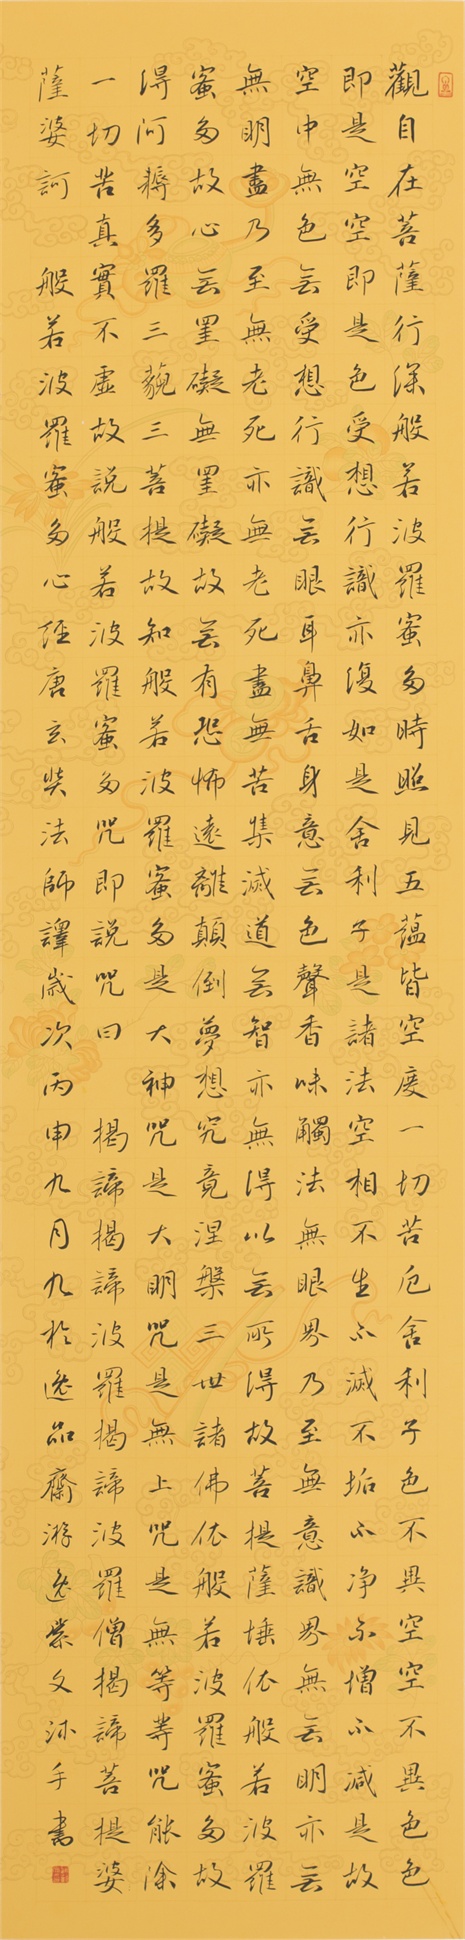 觀自在菩薩行深般若波羅蜜多時照見五蘊皆空度一切苦厄舍利子色不異空空不異色色
即是空空即是色受想行識亦復如是舍利子是諸法空相不生不滅不垢不净不增不減是故
空中無色无受想行識无眼耳鼻舌身意无色聲香味觸法無眼界乃至無意識界無无明亦无
無明盡乃至無老死亦無老死盡無苦集滅道无智亦無得以无所得故菩提薩埵依般若波羅
蜜多故心无罣礙無罣礙故无有恐怖遠離顛倒夢想究竟涅槃三世諸佛依般若波羅蜜多故
得阿耨多羅三藐三菩提故知般若波羅蜜多是大神咒是大明咒是無上咒是無等等咒能除
一切苦真實不虛故說般若波羅蜜多咒即說咒曰 揭諦揭諦波羅揭諦波羅僧揭諦菩提婆
薩婆訶 般若波羅蜜多心經唐玄奘法師譯歲次丙申九月九於逸品齋游逸文沐手書